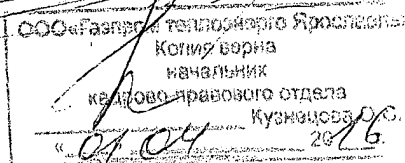 ООО«Газпром теплоэнерго Ярославль»
Копия верна
начальник
кадрово-правового отдела
Кузнецова О.С.
«01» 04 2016г.